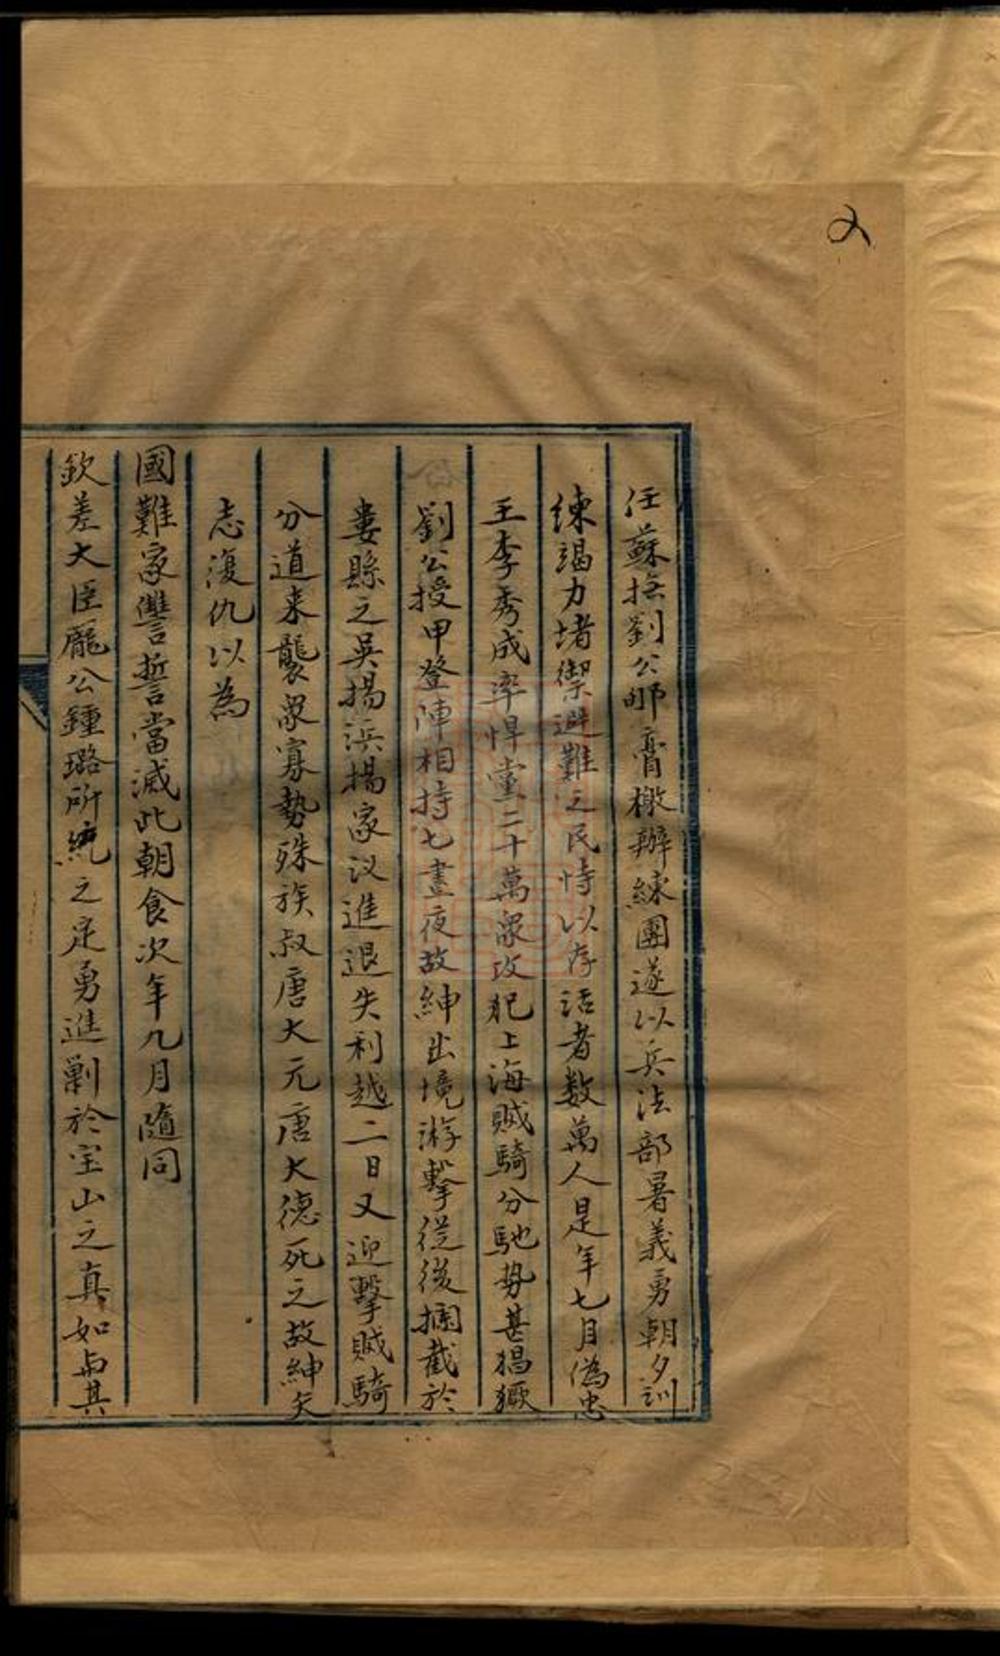 任蘇撫劉公郇膏檄辦練團遂以兵法部署義勇朝夕訓
練竭力堵禦避難之民恃以存活者数萬人是年七月偽忠
王李秀成率悍黨二十萬眾攻犯上海賊騎分馳势甚猖獗
劉公授甲登陣相持七晝夜故紳出境游擊從後攔截於
婁縣之吳揚浜揚家汊進退失利越二日又迎擊賊騎
分道来襲眾寡勢殊族叔唐大元唐大德死之故紳矢
志復仇以為
國難家讐誓當滅此朝食次年九月隨同
欽差大臣龐公鍾璐所統之定勇進剿於宝山之真如与其